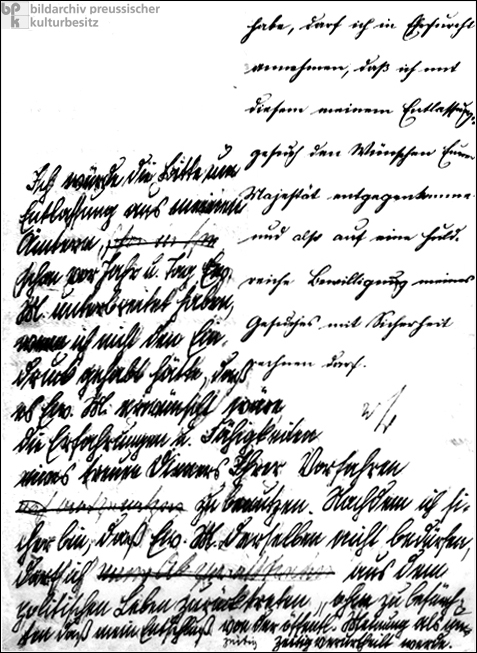 bildarchiv preussischer
kulturbesitz
habe, darf ich in Ehrfurcht
annehmen, daß ich mit
diesem meinem Entlassungs-
gesuch den Wünschen Eurer
Majestät entgegenkomme
und also auf eine huld-
reiche Bewilligung meines
Gesuches mit Sicherheit
rechnen darf.
Ich würde die Bitte um
Entlassung aus meinen
Ämtern,
schon vor Jahr u. Tag Ew.
M. unterbreitet haben,
wenn ich nicht den Ein-
druck gehabt hätte, daß
es Ew. M. erwünscht wäre,
die Erfahrungen u. Fähigkeiten
eines treuen Dieners Ihrer Vorfahren
zu benutzen. Nachdem ich si-
cher bin, daß Ew. M. derselben nicht bedürfen,
darf ich aus dem
politischen Leben zurücktreten, ohne zu befürch-
ten daß mein Entschluß von der öffentl. Meinung als un-
zeitig zeitig verurtheilt werde.